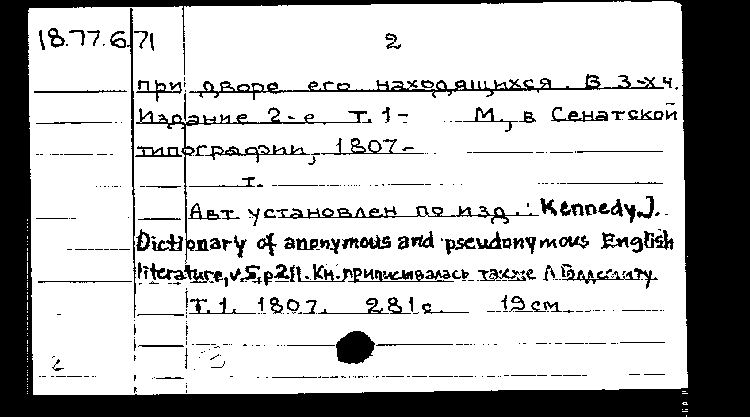 18.77.6.71 2
при дворе его находящихся. В 3-х ч.
Издание 2-е. Т.1- М., в Сенатской
типографии, 1807-
т.
Авт. установлен по изд.: Kennedy J.
Dictionary of anonymous and pseudonymous English
literature, v.5, p.211. Кн. приписывалась также Л Голдсмиту.
Т.1. 1807. 281с. 19см
2